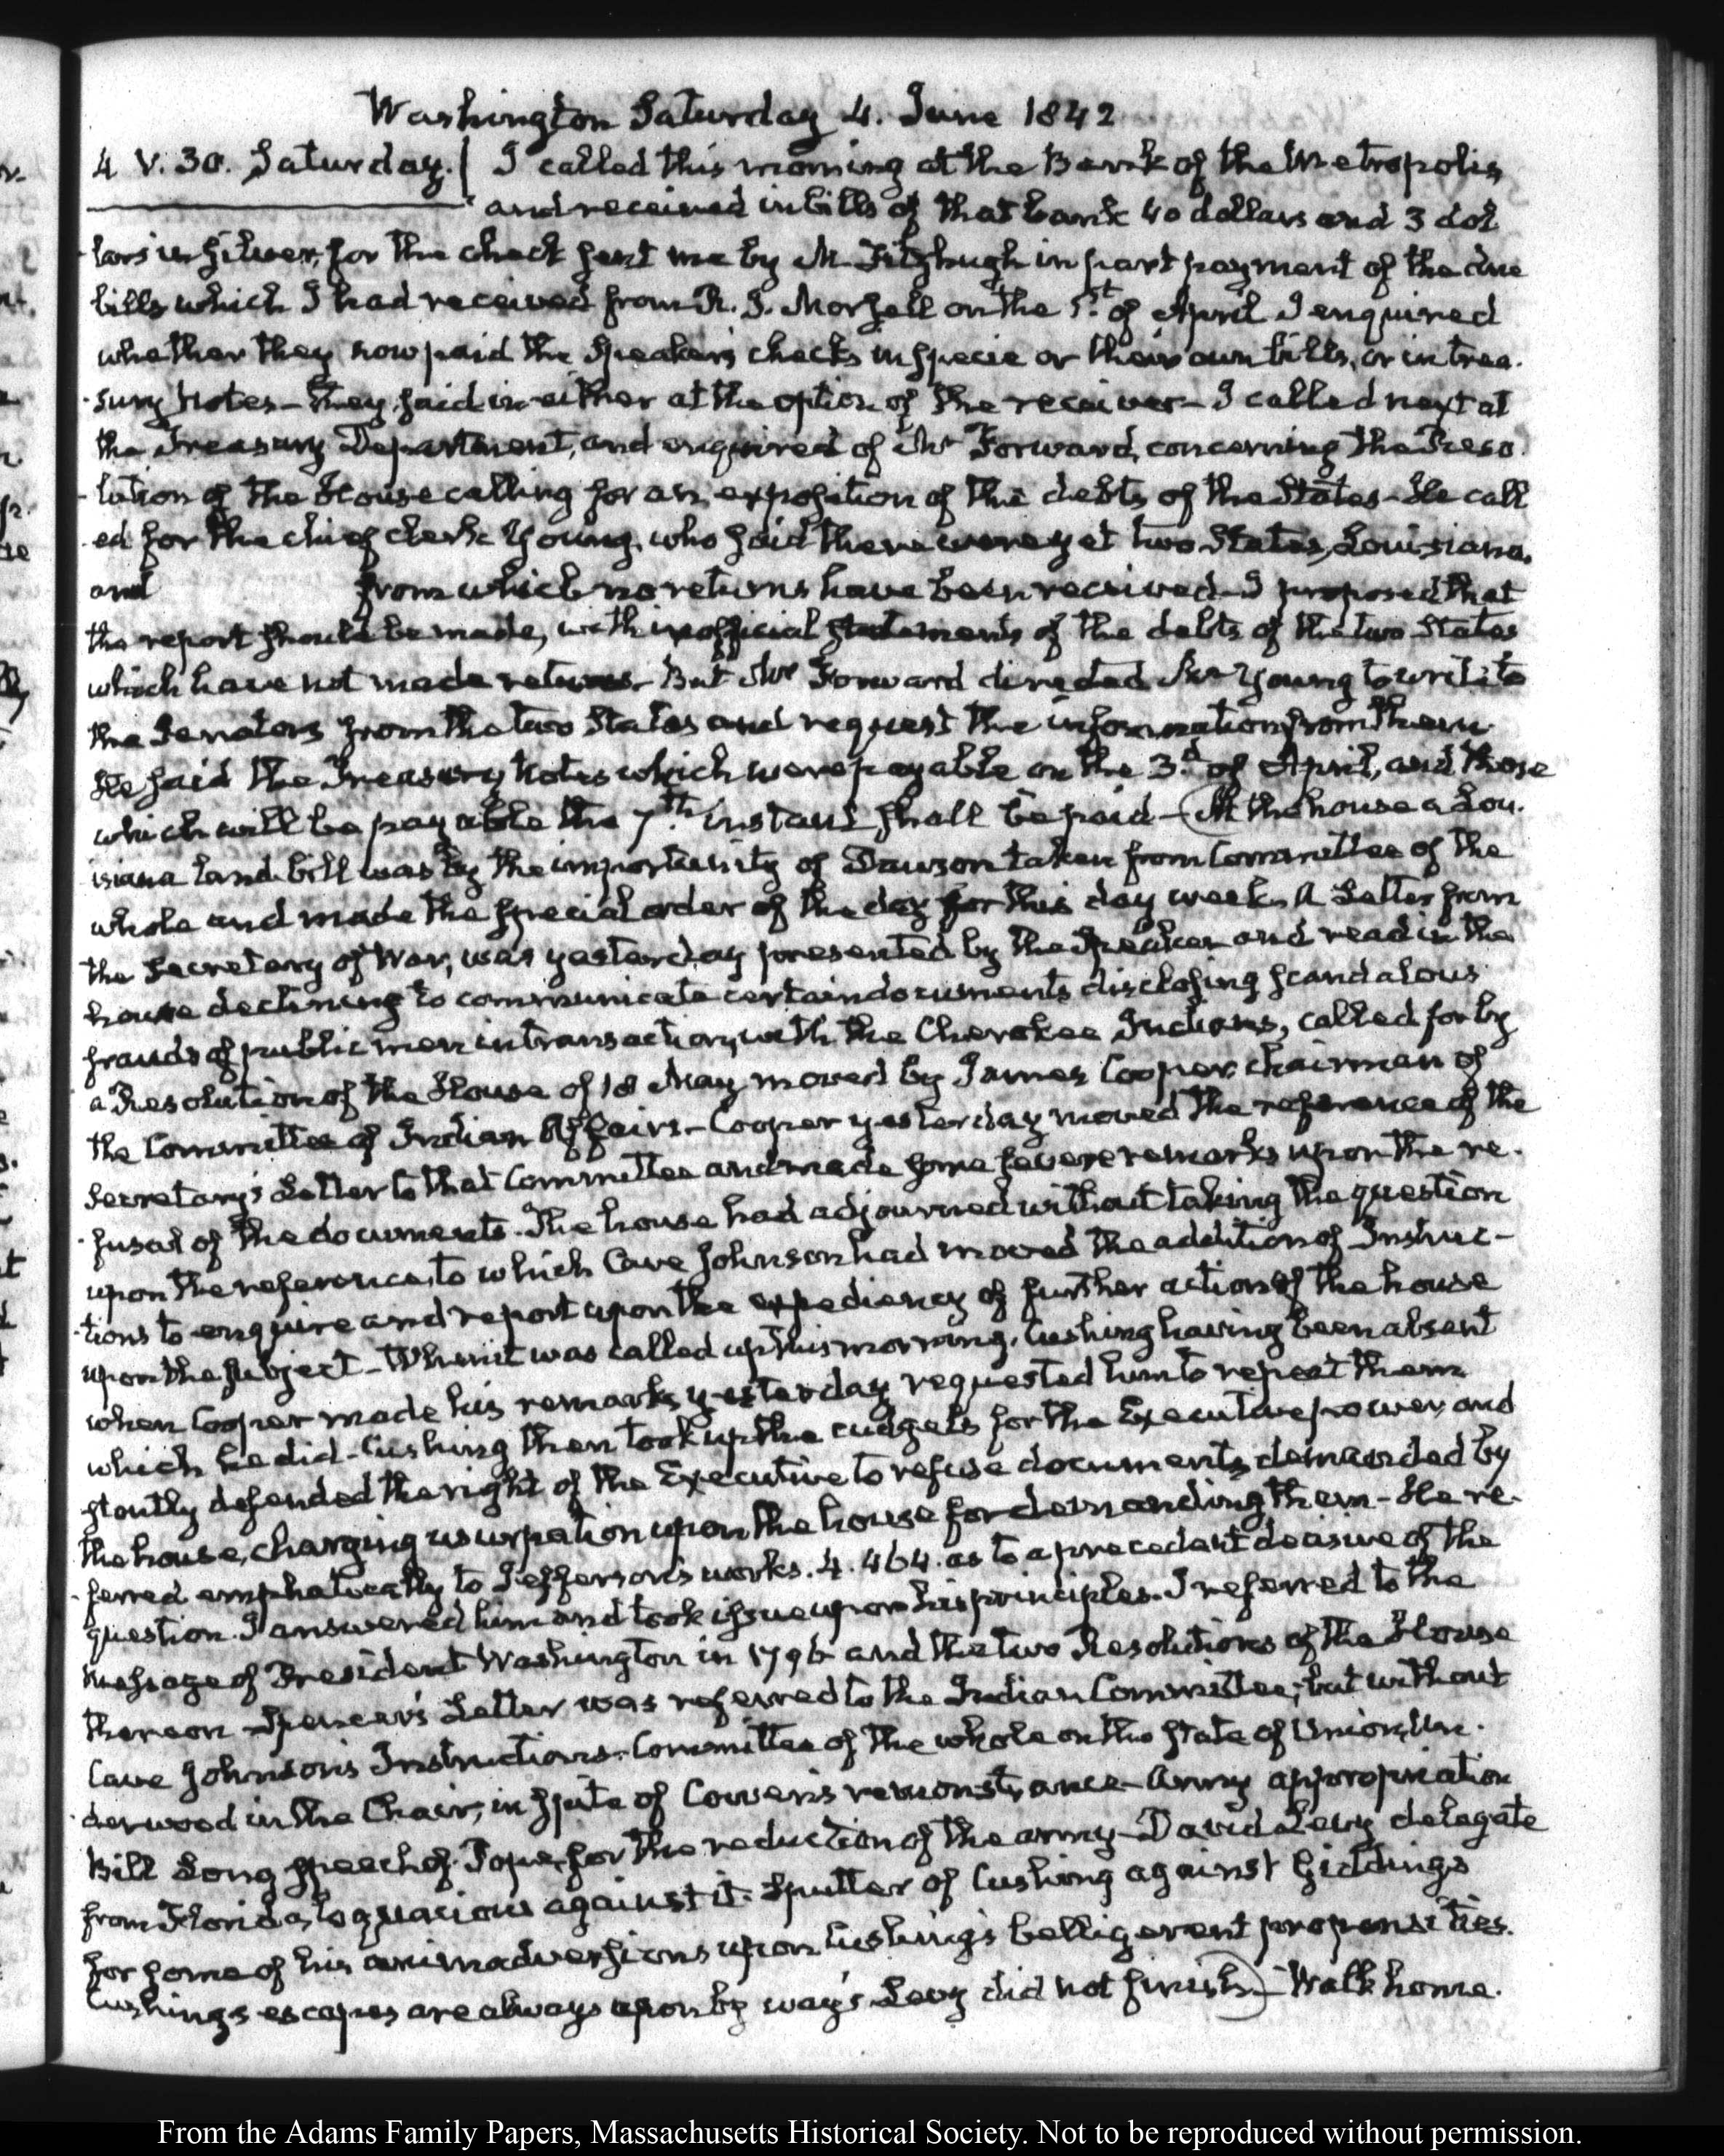 Washington Saturday 4. June 1842
4 V. 30. Saturday. I called this morning at the Bank of the Metropolis
and received in bills of that bank 40 dollars and 3 dol
-lars in silver, for the check sent me by Mr Fitzhugh in part payment of the due
bills which I had received from R. S. Morsell on the 1st of April I enquired
whether they now paid the Speaker's checks in specie or their own bills, or in trea-
-sury Notes - they said in either at the option of the receiver - I called next at
the Treasury Department, and enquired of Mr Forward, concerning the Reso-
-lution of the House calling for an exposition of the debts of the States - He call
-ed for the chief clerk Young, who said there were yet two States, Louisiana,
and from which no returns have been received - I proposed that
the report should be made, with inofficial statements of the debts of the two States
which have not made returns - But Mr Forward directed Mr Young to write to
the Senators from the two States and request the information from them.
He said the Treasury Notes which were payable on the 3d of April, and those
which will be payable the 7th instant shall be paid - (At the house a Lou-
isiana land bill was by the importunity of Dawson taken from Committee of the
whole and made the special order of the day for this day week. A Letter from
the Secretary of War, was yesterday presented by the Speaker and read in the
house declining to communicate certain documents disclosing scandalous
frauds of public men in transactions with the Cherokee Indians, called for by
a Resolution of the House of 18 May moved by James Cooper chairman of
the Committee of Indian Affairs - Cooper yesterday moved the reference of the
Secretary's Letter to that Committee and made some severe remarks upon the re-
-fusal of the documents. The house had adjourned without taking the question
upon the reference, to which Cave Johnson had moved the addition of Instruc-
-tions to enquire and report upon the expediency of further action of the house
upon the subject - When it was called up this morning, Cushing having been absent
when Cooper made his remarks yesterday requested him to repeat them
which he did - Cushing then took up the cudgels for the Executive power, and
stoutly defended the right of the Executive to refuse documents demanded by
the house, charging usurpation upon the house for demanding them - He re-
-ferred emphatically to Jefferson's works. 4. 464. as to a precedent decisive of the
question. I answered him and took issue upon his principles. I referred to the
message of President Washington in 1796 and the two Resolutions of the House
thereon - Spencer's Letter was referred to the Indian Committee; but without
Cave Johnson's Instructions. Committee of the whole on the state of Union, Un-
-derwood in the Chair, in spite of Cowen's remonstrance - Army appropriation
Bill Long speech of Pope, for the reduction of the army - David Levy delegate
from Florida, loquacious against it. Sputter of Cushing against Giddings
for some of his animadversions upon Cushing's belligerent propensities.
Cushings escapes are always upon by way's Levy did not finish) - Walk home.
From the Adams Family Papers, Massachusetts Historical Society. Not to be reproduced without permission.